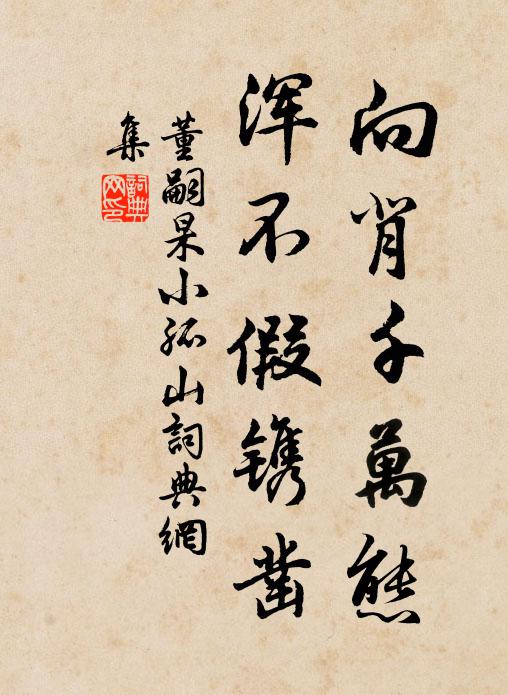 向背千萬態
浑不假镌凿
董嗣杲小孤山詞典網
集
詞典
網印